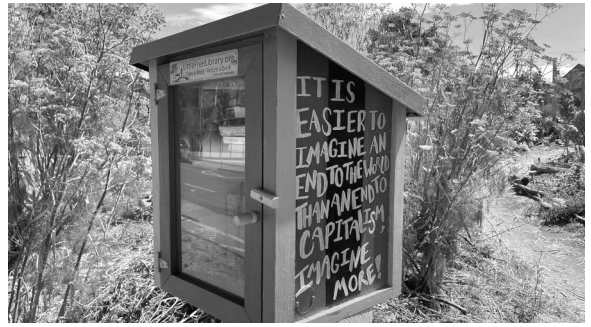 LittleFreeLibrary.org
Take a Book • Return a Book
IT IS
EASIER TO
IMAGINE AN
END TO THE WORLD
THAN AN END TO
CAPITALISM,
IMAGINE
MORE!